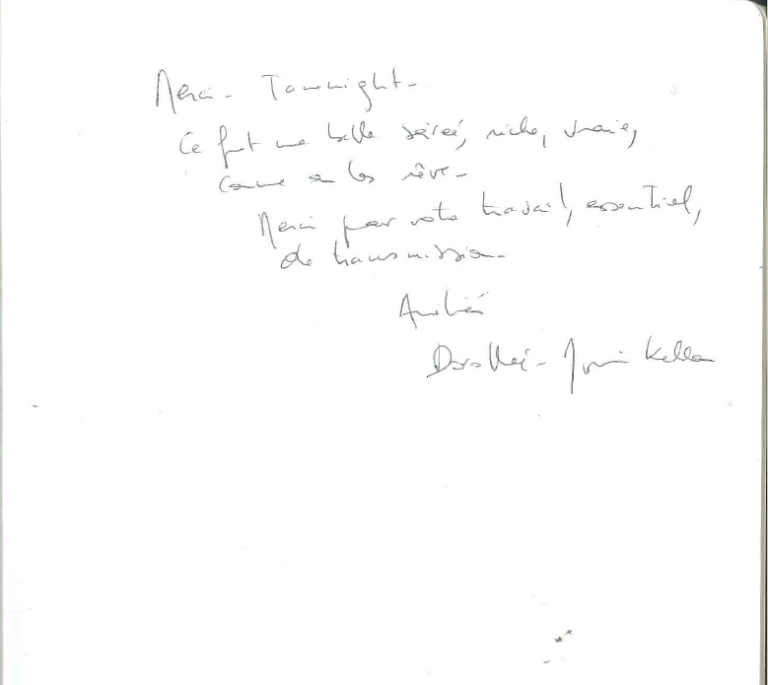 Merci - Tamnight -
Ce fut une belle soirée, riche, vraie,
comme on les rêve -
Merci pour votre travail, essentiel,
de transmission -
Amitiés
Dorothée - Kellou